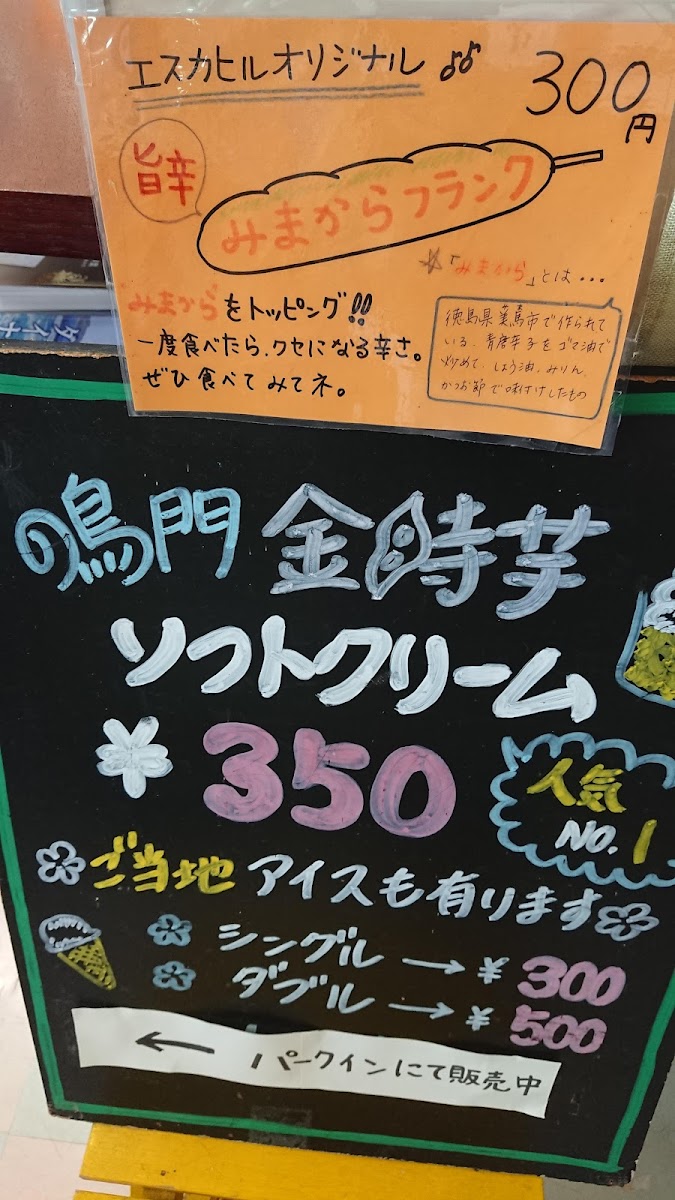 エスカヒルオリジナル ♫♫
300円
旨辛
みまからフランク
みまからをトッピング!!
一度食べたら、クセになる辛さ。
ぜひ食べてみてネ。
※「みまから」とは・・・
徳島県美馬市で作られて
いる、青唐辛子をゴマ油で
炒めて、しょう油、みりん、
かつお節で味付けしたもの
鳴門 金時芋
ソフトクリーム
¥350
人気
NO.1
ご当地アイスも有ります
シングル → ¥300
ダブル → ¥500
← パークインにて販売中